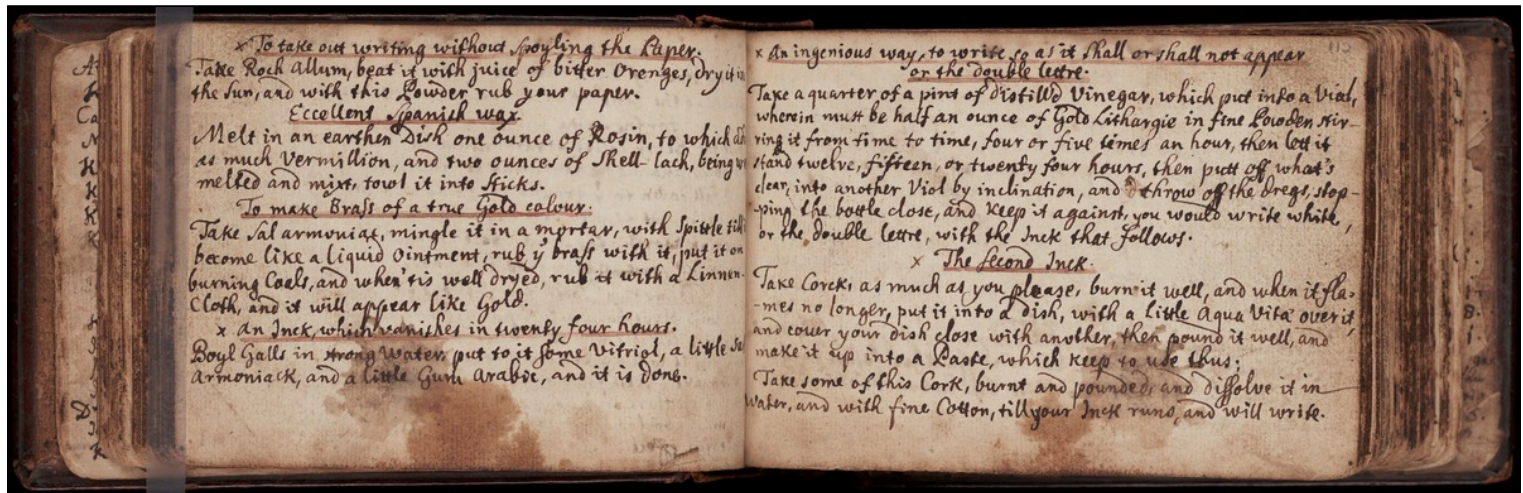 x To take out writing without spoyling the Paper.
Take Roch Allum, beat it with juice of bitter Orenges, dry it in
the Sun, and with this Powder rub your paper.
Eccellent Spanish wax
Melt in an earthen Dish one ounce of Rosin, to which
as much Vermillion, and two ounces of Shell-lach, being
melted and mixt, rowl it into sticks.
To make Brass of a true Gold colour.
Take Sal armoniac, mingle it in a mortar, with Spittle till
become like a liquid Ointment, rub yͤ brass with it, put it on
burning Coals, and when 'tis well dryed, rub it with a Linnen-
Cloth, and it will appear like Gold.
x An Inck, which vanishes in twenty four hours.
Boyl Galls in strong water, put to it some Vitriol, a little
Armoniack, and a little Gum Arabic, and it is done.
112
x An ingenious way, to write so as it shall or shall not appear
or the double lettre.
Take a quarter of a pint of distill'd Vinegar, which put into a Vial,
wherein must be half an ounce of Gold Lithargie in fine Powder stir-
ring it from time to time, four or five times an hour, then lett it
stand twelve, fifteen, or twenty four hours, then putt off what's
clear, into another Viol by inclination, and throw off the dregs, stop-
-ping the bottle close, and keep it against, you would write white,
or the double lettre, with the Inck that follows.
x The second Inck.
Take Corck, as much as you please, burn it well, and when it fla-
-mes no longer, put it into a dish, with a little Aqua Vita over it,
and cover your dish close with another, then pound it well, and
make it up into a Paste, which keep to use thus;
Take some of this Cork, burnt and pounded, and dissolve it in
water, and with fine Cotton, till your Inck runs, and will write.